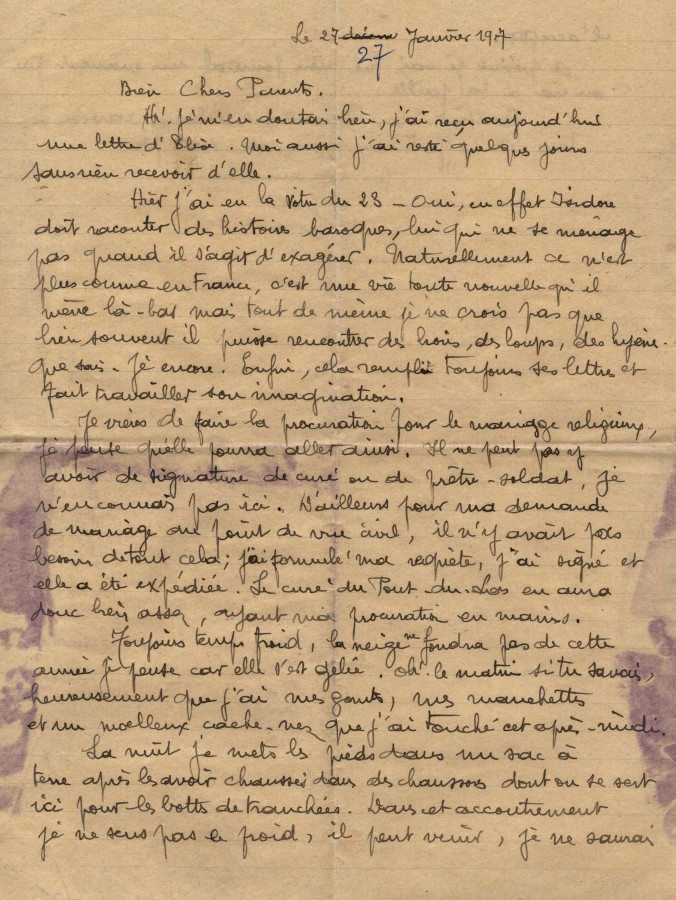 Le 27 décem Janvier 1917
27
Bien Chers Parents.
Ah! Je m'en doutais bien, j'ai reçu aujourd'hui
une lettre d' . Moi aussi j'ai resté quelques jours
sans rien recevoir d'elle.
Hier j'ai eu la vôtre du 23 - Oui, en effet Isidore
doit raconter des histoires baroques, lui qui ne se ménage
pas quand il s'agit d'exagérer. Naturellement ce n'est
plus comme en France, c'est une vie toute nouvelle qu'il
mène là-bas mais tout de même je ne crois pas que
bien souvent il puisse rencontrer des lions, des loups, des hyène-
que sais-je encore. Enfin, cela remplit toujours ses lettres et
fait travailler son imagination.
Je viens de faire la procuration pour le mariage religieux,
je pense qu'elle pourra aller ainsi. Il ne peut pas y
avoir de signature de curé ou de prêtre-soldat, je
n'en connais pas ici. D'ailleurs pour ma demande
de mariage au point de vue civil, il n'y avait pas
besoin de tout cela; j'ai formulé ma requête, j'ai signé et
elle a été expédiée. Le curé du Pont-du- en aura
donc bien assez, ayant ma procuration en mains.
Toujours temps froid, la neige ne fondra pas de cette
année je pense car elle s'est gelée. Oh! le matin si tu savais,
heureusement que j'ai mes gants, mes manchettes
et un moelleux cache-nez que j'ai touché cet après-midi.
La nuit je mets les pieds dans un sac à
terre après les avoir chaussés dans des chaussons dont on se sert
ici pour les bottes de tranchées. Dans cet accoutrement
je ne sens pas le froid, il peut venir, je ne saurai